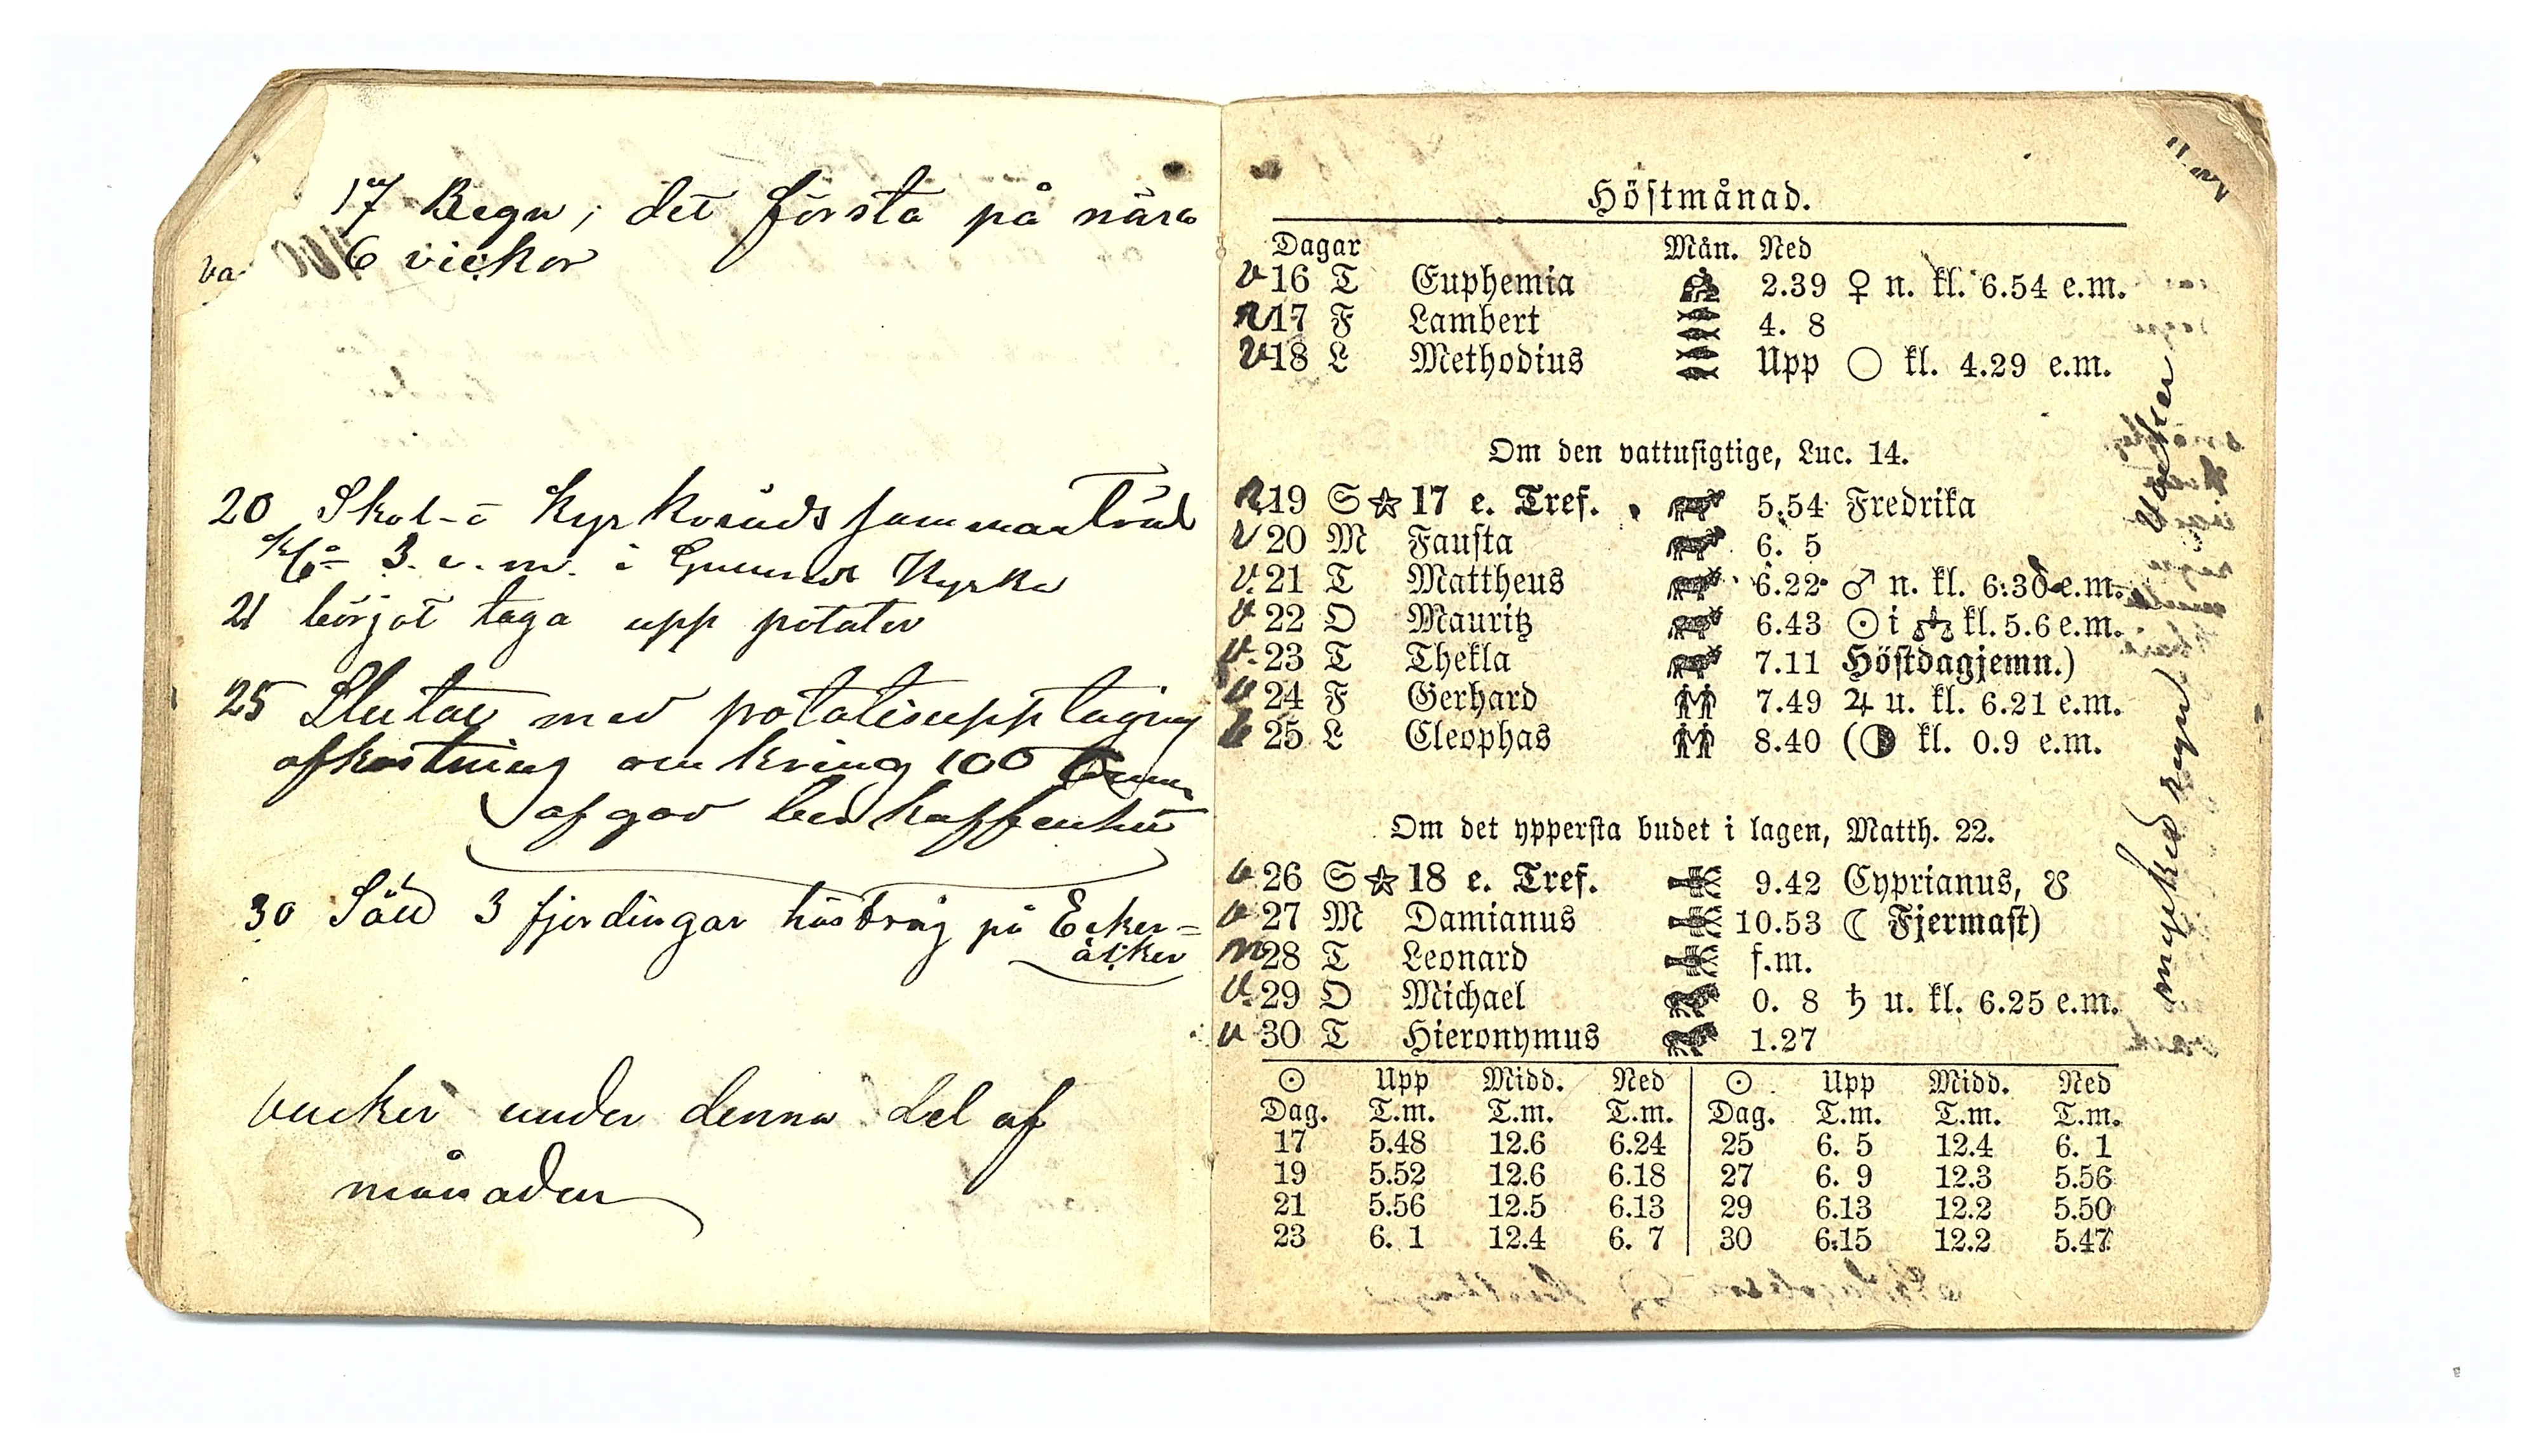 17 Regn, det första på nära
6 vickor
va
20 Skol- o Kyrkoråds sammanträd
kl. 3. e. m. i Kyrka
21 börjat taga upp potater
25 Slutat med potatisupptagning
afkastning omkring 100
af gav
30 Såd 3 fjerdingar höstråg på Ecker=
åcker
vacker under denna del af
månaden
Höstmånad.
Dagar Mån. Ned
v 16 T Euphemia 2.39 ♀ n. kl. 6.54 e.m.
R 17 F Lambert 4. 8
v 18 L Methodius Upp ○ kl. 4.29 e.m.
Om den vattusigtige, Luc. 14.
R 19 S ☆ 17 e. Tref. 5.54 Fredrika
v 20 M Fausta 6. 5
v. 21 T Mattheus 6.22 ♂ n. kl. 6.30 e.m.
v 22 O Mauritz 6.43 ☉ i ♎ kl. 5.6 e.m.
v. 23 T Thekla 7.11 Höstdagjemn.)
v 24 F Gerhard 7.49 ♃ u. kl. 6.21 e.m.
25 L Cleophas 8.40 (◑ kl. 0.9 e.m.
Om det yppersta budet i lagen, Matth. 22.
v 26 S ☆ 18 e. Tref. 9.42 Cyprianus, ☋
v 27 M Damianus 10.53 ☾ Fjermast)
m 28 T Leonard f.m.
v. 29 O Michael 0. 8 ♄ u. kl. 6.25 e.m.
v 30 T Hieronymus 1.27
☉ Upp Midd. Ned ☉ Upp Midd. Ned
Dag. T.m. T.m. T.m. Dag. T.m. T.m. T.m.
17 5.48 12.6 6.24 25 6. 5 12.4 6. 1
19 5.52 12.6 6.18 27 6. 9 12.3 5.56
21 5.56 12.5 6.13 29 6.13 12.2 5.50
23 6. 1 12.4 6. 7 30 6.15 12.2 5.47
mycked regn